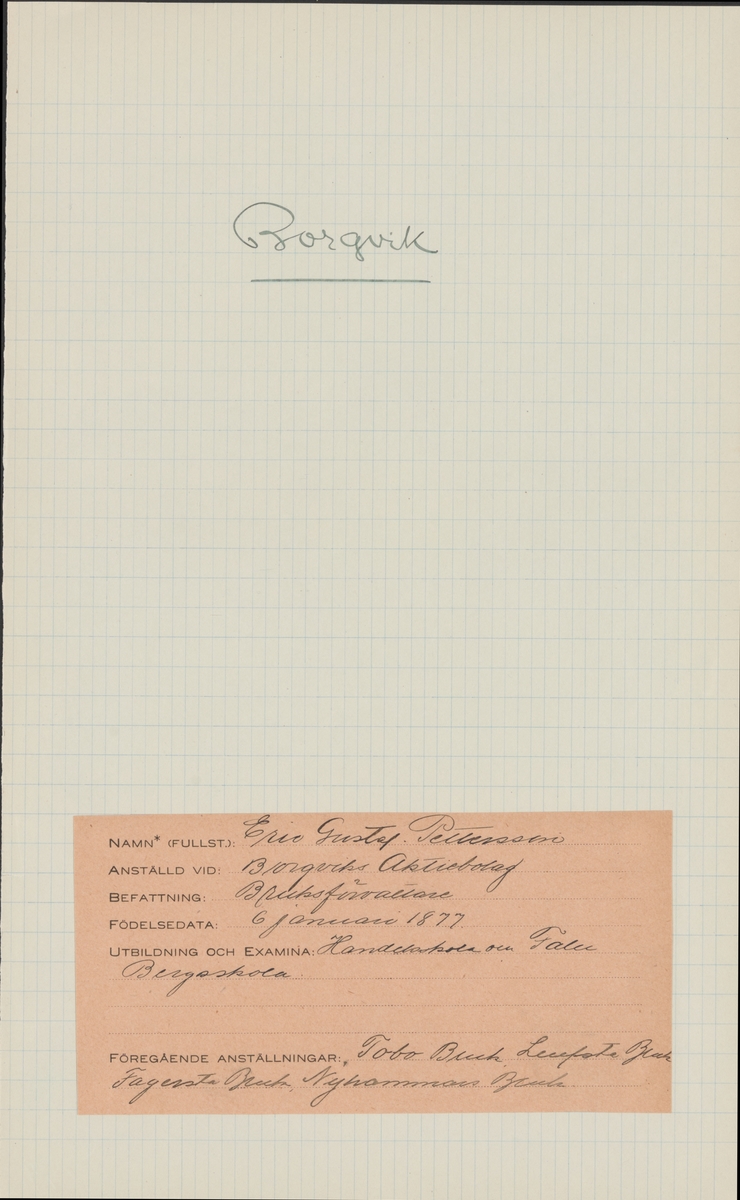 Borgvik
NAMN* (FULLST.): Eric Gustaf Pettersson
ANSTÄLLD VID: Borgviks Aktiebolag
BEFATTNING: Bruksförvaltare
FÖDELSEDATA: 6 januari 1877
UTBILDNING OCH EXAMINA: Handelsskola och Falu
Bergsskola.
FÖREGÅENDE ANSTÄLLNINGAR: Tobo Bruk Leufsta Bruk
Fagersta Bruk, Nyhammars Bruk